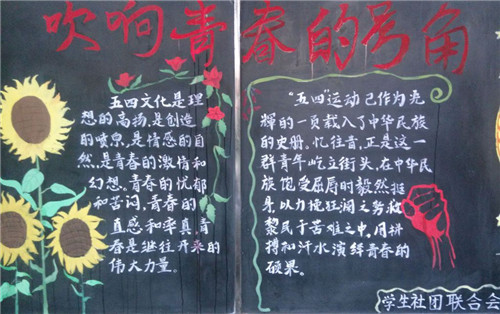 吹响青春的号角
五四文化是理
想的高扬,是创造
的喷泉,是情感的自
然,是青春的激情和
幻想。青春的忧郁
和苦闷,青春的
直感和率真,青
春是继往开来的
伟大力量。
“五四”运动已作为光
辉的一页载入了中华民族
的史册。忆往昔,正是这一
群青年屹立街头,在中华民
族饱受屈辱时毅然挺
身,以力挽狂澜之势救
黎民于苦难之中,用拼
搏和汗水演绎青春的
硕果。
学生社团联合会